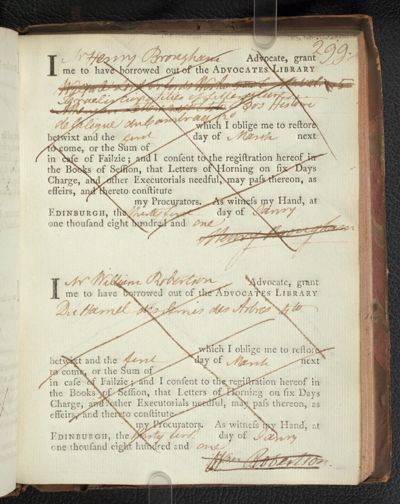 299.
I Mr Henry Brougham Advocate, grant
me to have borrowed out of the ADVOCATES LIBRARY
Bos Histoire
which I oblige me to reſtore
betwixt and the day of March next
to come, or the Sum of
in caſe of Failzie; and I conſent to the regiſtration hereof in
the Books of Seſſion, that Letters of Horning on ſix Days
Charge, and other Executorials needful, may paſs thereon, as
effeirs, and thereto conſtitute
my Procurators. As witneſs my Hand, at
EDINBURGH, the thirty first day of Janry
one thouſand eight hundred and one
Henry Brougham
I Mr William Robertson Advocate, grant
me to have borrowed out of the ADVOCATES LIBRARY
Du Hamel des Semes des Arbres 4to
which I oblige me to reſtore
betwixt and the first day of March next
to come, or the Sum of
in caſe of Failzie; and I conſent to the regiſtration hereof in
the Books of Seſſion, that Letters of Horning on ſix Days
Charge, and other Executorials needful, may paſs thereon, as
effeirs, and thereto conſtitute
my Procurators. As witneſs my Hand, at
EDINBURGH, the thirty first day of Janry
one thouſand eight hundred and one
Robertson